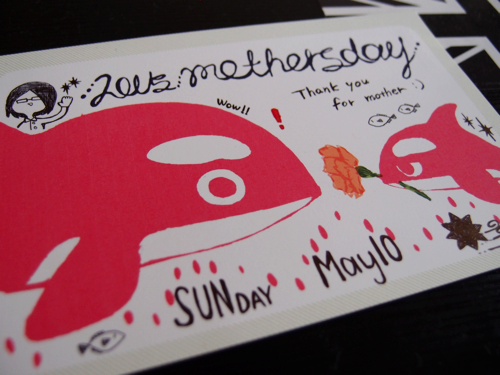 2015 mothersday
Wow!!
!
Thank you
for mother :)
SUNDAY
May10